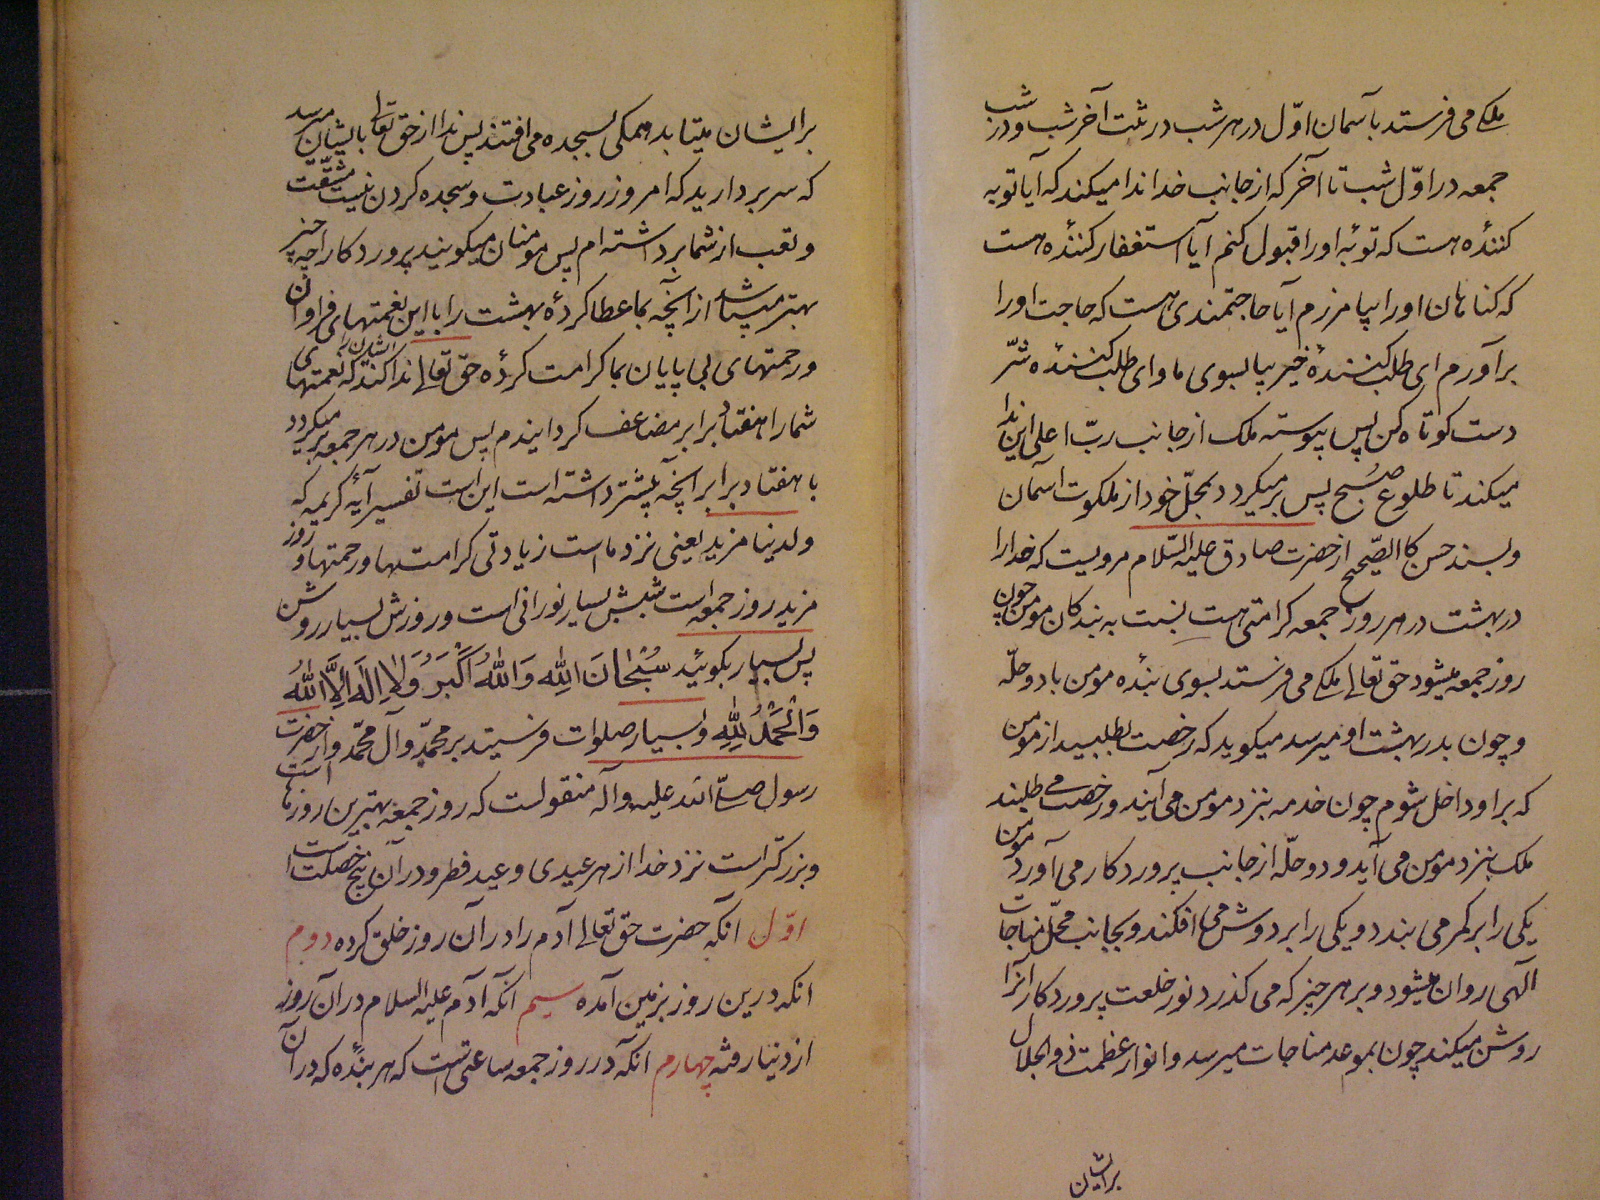 ملکی می فرستد بآسمان اوّل در هر شب در ثلث آخر شب و در شب
جمعه در اوّل شب تا آخر که از جانب خدا ندا میکند که آیا توبه
کنندۀ هست که توبۀ او را قبول کنم ایا استغفار کنندۀ هست
که کناهان او را بیامرزم آیا حاجتمندی هست که حاجت او را
برآورم ای طلب کنندۀ خیر بیا بسوی ما و ای طلب کنندۀ شرّ
دست کوتاه کن پس پیوسته ملک از جانب ربّ اعلی این ندا
میکند تا طلوع صبح پس بر میکردد بمحلّ خود از ملکوت آسمان
و بسند حسن کالصّحیح از حضرت صادق علیه السّلام مرویست که خدا را
در بهشت در هر روز جمعه کرامتی هست نسبت به بندکان مومن چون
روز جمعه میشود حق تعالی ملکی می فرستد بسوی بندۀ مومن با دو حلّه
و چون بدر بهشت او میرسد میکوید که رخصت بطلبید از مومن
که بر او داخل شوم چون خدمه بنزد مومن می آیند و رخصت می طلبند
ملک بنزد مومن می آید و دو حلّه از جانب پروردکار می آورد مومن
یکی را بر کمر می بندد و یکی را بر دوش می افکند و بجانب محلّ مناجات
آلهی روان میشود و بر هر چیز که می کذرد نور خلعت پروردکار آنرا
روشن میکند چون بموعد مناجات میرسد و انوار عظمت ذو الجلال
برایشان
برایشان میتابد همکی بسجده می افتند پس ندا از حق تعالی بایشان میرسد
که سر بردارید که امروز روز عبادت و سجده کردن نیست مشقّت
و تعب از شما برداشته ام پس مومنان میکویند پروردکارا چه چیز
بهتر میباشد از انچه بما عطا کردۀ بهشت را با این نعمتهای فراوان
و رحمتهای بی پایان بما کرامت کردۀ حقّ تعالی ندا کند ایشان را که نعمتهای
شما را هفتاد برابر مضاعف کردانیدم پس مومن در هر جمعه بر میکردد
با هفتاد برابر انچه پیشتر داشته است این است تفسیر آیۀ کریمه که
ولدینا مزید یعنی نزد ماست زیادتی کرامتها و رحمتها و روز
مزید روز جمعه است شبش بسیار نورانی است و روزش بسیار روشن
پس بسیار بکوئید سُبْحَانَ اللّٰهِ وَاللّٰهُ اَکْبَرُ وَلَا اِلٰهَ اِلَّا اللّٰهُ
وَالْحَمْدُ لِلّٰهِ و بسیار صلوات فرستید بر محمّد و آل محمّد و از حضرت
رسول صلّی الله علیه وآله منقولست که روز جمعه بهترین روزها است
و بزرکتر است نزد خدا از هر عیدی و عید فطر و در آن پنج خصلت است
اوّل آنکه حضرت حق تعالی آدم را در آن روز خلق کرده دوم
انکه درین روز بزمین آمده سیم آنکه آدم علیه السلام در آن روز
از دنیا رفته چهارم انکه در روز جمعه ساعتی هست که هر بندۀ که در آن